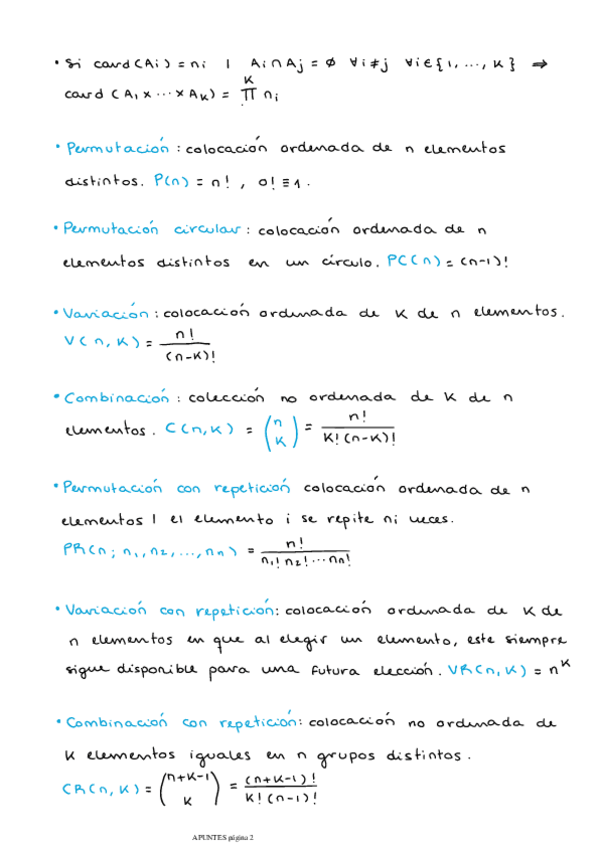 • Si card(Ai) = ni | Ai ∩ Aj = ∅ ∀i≠j ∀i∈{1, ..., K} ⇒
card (A₁ x ... x Aₖ) = ∏ᴷ ni
• Permutación: colocación ordenada de n elementos
distintos. P(n) = n! , 0! ≡ 1.
• Permutación circular: colocación ordenada de n
elementos distintos en un círculo. PC(n) = (n-1)!
• Variación: colocación ordenada de K de n elementos.
V(n, K) = n! / (n-K)!
• Combinación: colección no ordenada de K de n
elementos. C(n, K) = (n K) = n! / K! (n-K)!
• Permutación con repetición colocación ordenada de n
elementos | el elemento i se repite ni veces.
PR(n; n₁, n₂, ..., nn) = n! / n₁! n₂! ... nn!
• Variación con repetición: colocación ordenada de K de
n elementos en que al elegir un elemento, este siempre
sigue disponible para una futura elección. VR(n, K) = nᴷ
• Combinación con repetición: colocación no ordenada de
K elementos iguales en n grupos distintos.
CR(n, K) = (n+K-1 K) = (n+K-1)! / K! (n-1)!
APUNTES página 2